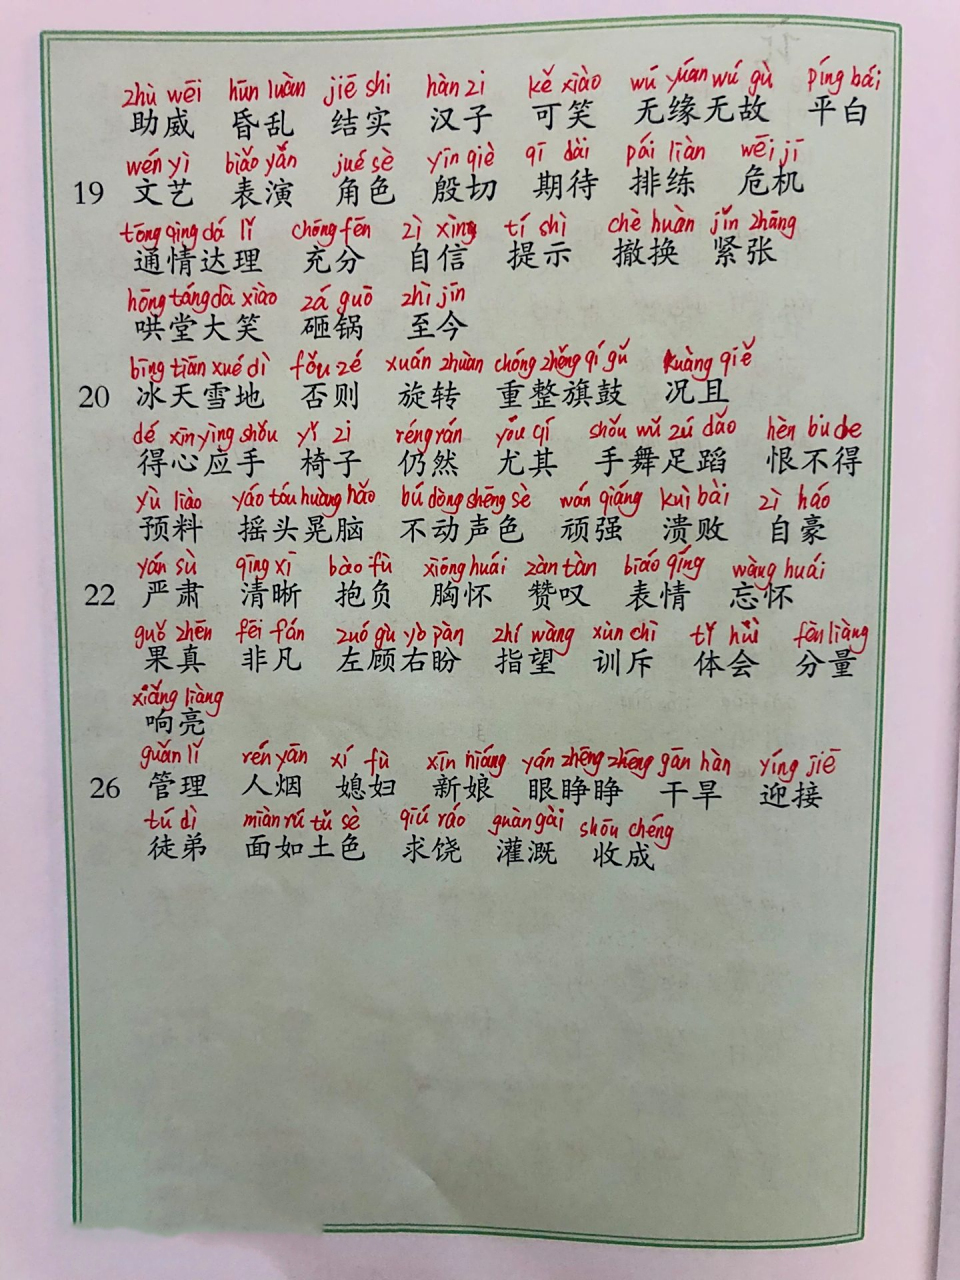 zhù wēi hūn luàn jiē shi hàn zi kě xiào wú yuán wú gù píng bái
助威 昏乱 结实 汉子 可笑 无缘无故 平白
wén yì biǎo yǎn jué sè yīn qiè qī dài pái liàn wēi jī
19 文艺 表演 角色 殷切 期待 排练 危机
tōng qíng dá lǐ chōng fēn zì xìng tí shì chè huàn jǐn zhāng
通情达理 充分 自信 提示 撤换 紧张
hōng táng dà xiào zá guō zhì jīn
哄堂大笑 砸锅 至今
bīng tiān xué dì fǒu zé xuán zhuàn chóng zhěng qí gǔ kuàng qiě
20 冰天雪地 否则 旋转 重整旗鼓 况且
dé xīn yìng shǒu yǐ zi réng rán yóu qí shǒu wǔ zú dǎo hèn bu de
得心应手 椅子 仍然 尤其 手舞足蹈 恨不得
yù liào yáo tóu huàng nǎo bú dòng shēng sè wán qiáng kuì bài zì háo
预料 摇头晃脑 不动声色 顽强 溃败 自豪
yán sù qīng xī bào fù xiōng huái zàn tàn biǎo qíng wàng huái
22 严肃 清晰 抱负 胸怀 赞叹 表情 忘怀
guǒ zhēn fēi fán zuǒ gù yò pàn zhǐ wàng xùn chì tǐ huì fèn liàng
果真 非凡 左顾右盼 指望 训斥 体会 分量
xiǎng liàng
响亮
guǎn lǐ rén yān xí fù xīn niáng yǎn zhēng zhēng gān hàn yíng jiē
26 管理 人烟 媳妇 新娘 眼睁睁 干旱 迎接
tú dì miàn rú tǔ sè qiú ráo guàn gài shōu chéng
徒弟 面如土色 求饶 灌溉 收成